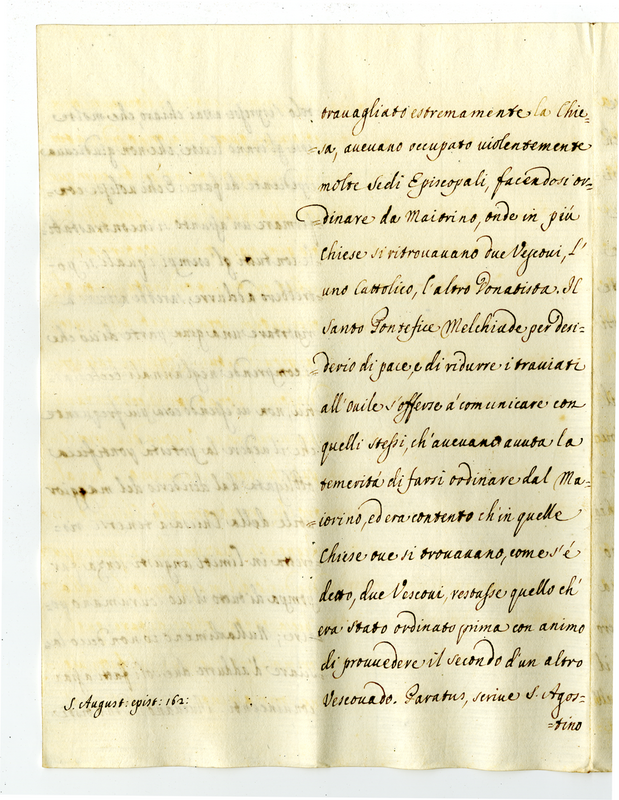 travagliato estremamente la Chie-
=sa, avevano occupato violentemente
molte Sedi Episcopali, facendosi or-
=dinare da Maiorino, onde in più
Chiese si ritrovavano due Vescovi, l'
uno Cattolico, l'altro Donatista. Il
Santo Pontefice Melchiade per desi-
=derio di pace, e di ridurre i traviati
all'Ovile s'offerse à comunicare con
quelli stessi, ch'avevano avuta la
temerità di farsi ordinare dal Ma-
=iorino, ed era contento ch'in quelle
Chiese ove si trovavano, come s'é
detto, due Vescovi, restasse quello ch'
era stato ordinato prima con animo
di provvedere il secondo d'un altro
Vescovado. Paratus, scrive S. Agos-
=tino
S. August: epist: 162: